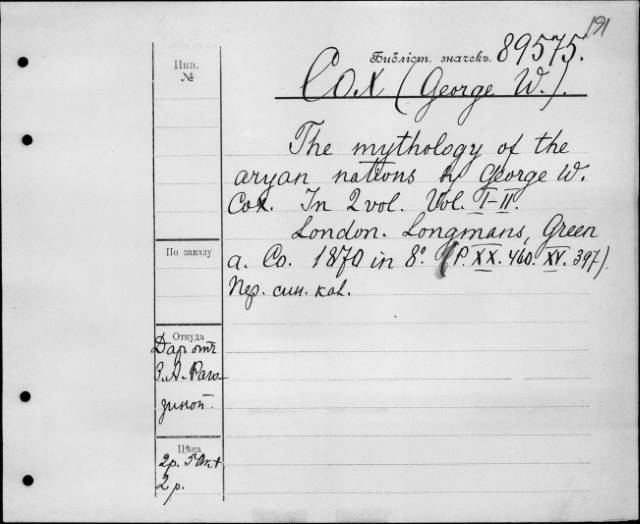 191
Библіот. значекъ. 89575.
Инв.
№
Cox (George W.).
The mythology of the
aryan nations by George W.
Cox. In 2 vol. Vol. I-II.
London. Longmans, Green
По заказу
a. Co. 1870 in 8º. (P. XX. 460. XV. 397)
Пер. син. кол.
Откуда
Даръ отъ
З.А. Раго-
зиной.
Цѣна
2р. 5 Окт
2р.